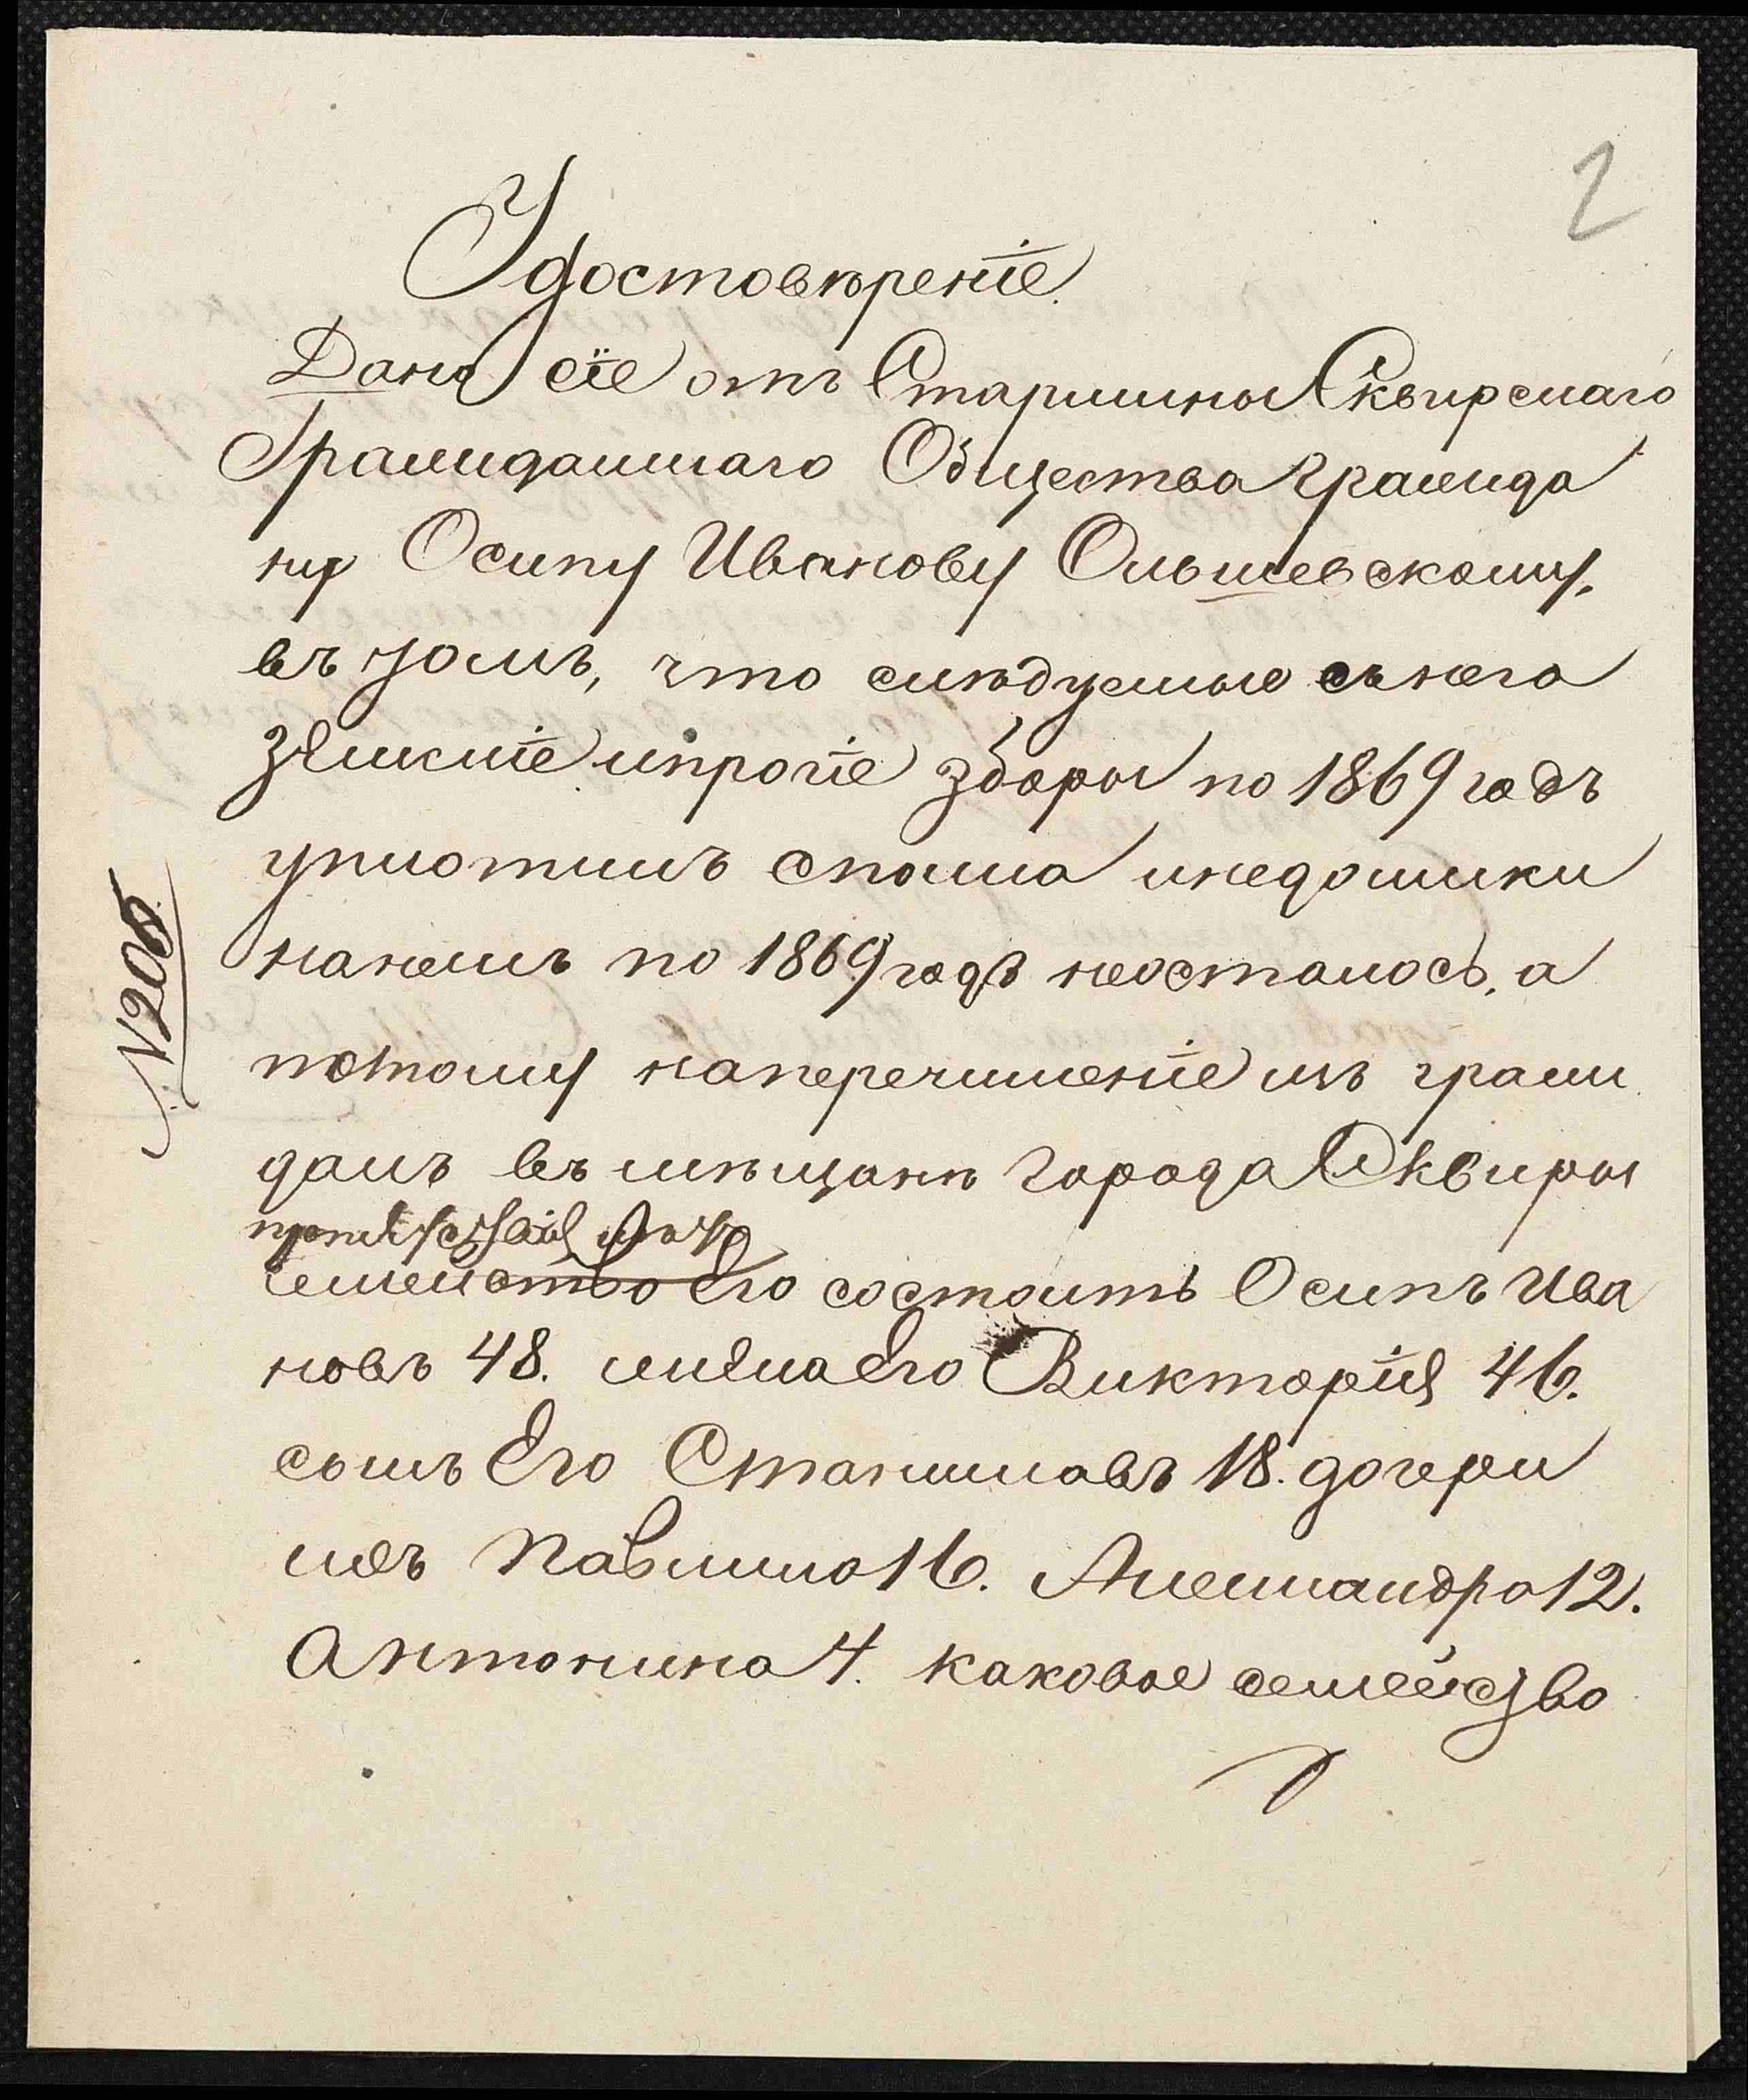 2
Удостовѣреніе.
Дано сіе отъ Старшины Сквирскаго
Гражданскаго Общества гражда
ну Осипу Иванову Ольшевскому,
въ томъ, что слѣдуемые съ него
земскіе и прочіе зборы по 1869 годъ
уплотилъ сполна и недоимки
на немъ по 1869 годъ не осталось, а
потому на перечисленіе изъ граж
данъ въ мѣщане города Сквиры
семейство Его состоитъ Осипъ Ива
новъ 48. жена Его Викторія 46.
сынъ Его Станиславъ 18. дочери
ихъ Павлина 16. Александра 12.
Антонина 4. каковое семейство
N 206